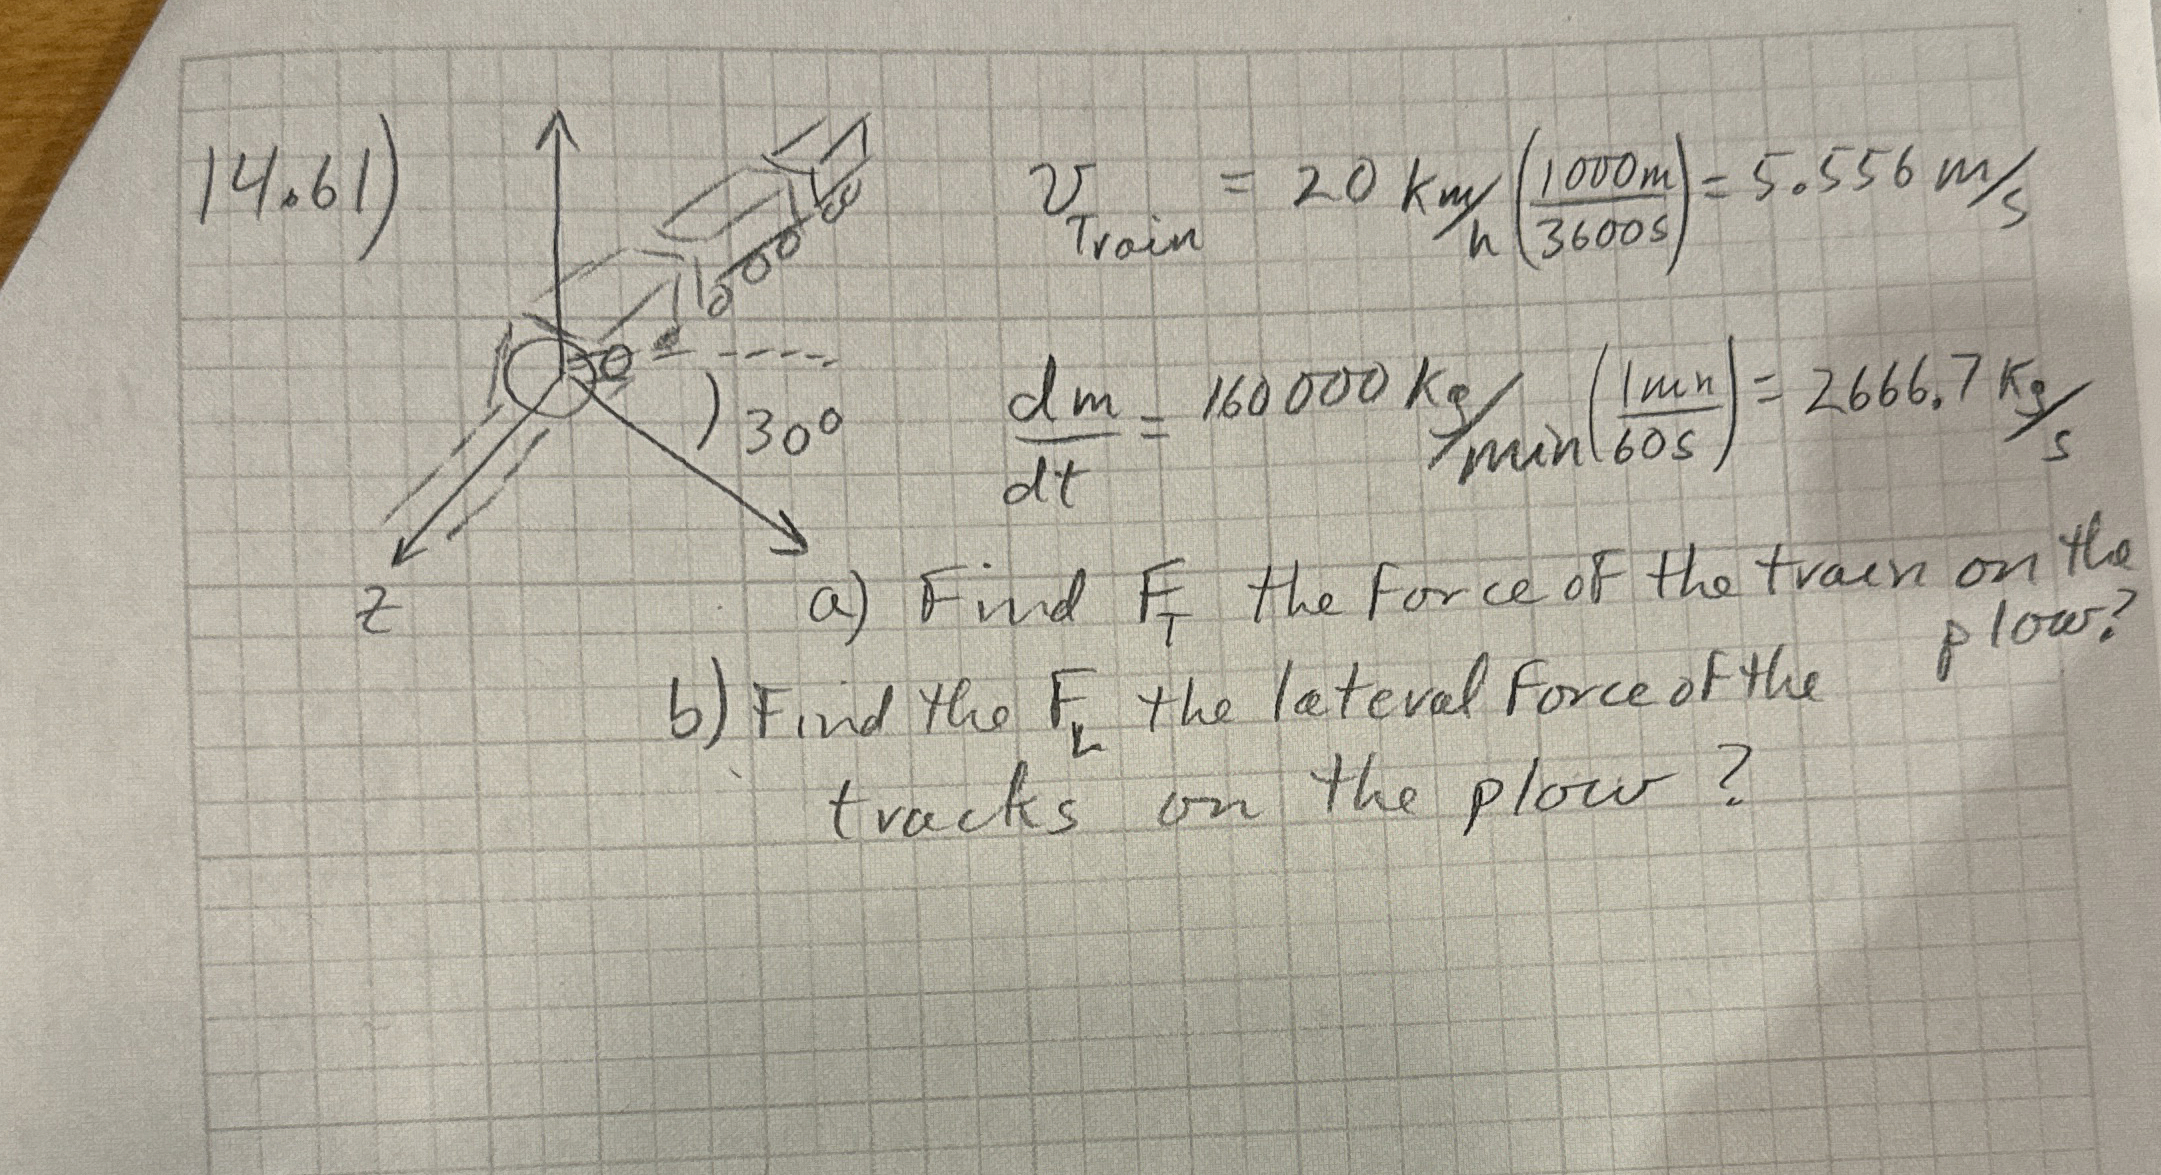 14.61)
v Train = 20 km/h (1000m/3600s) = 5.556 m/s
dm/dt = 160000 kg/min (1mn/60s) = 2666.7 Kg/s
30°
z
a) Find F_T the Force of the train on the
plow?
b) Find the F_L the lateral Force of the
tracks on the plow?